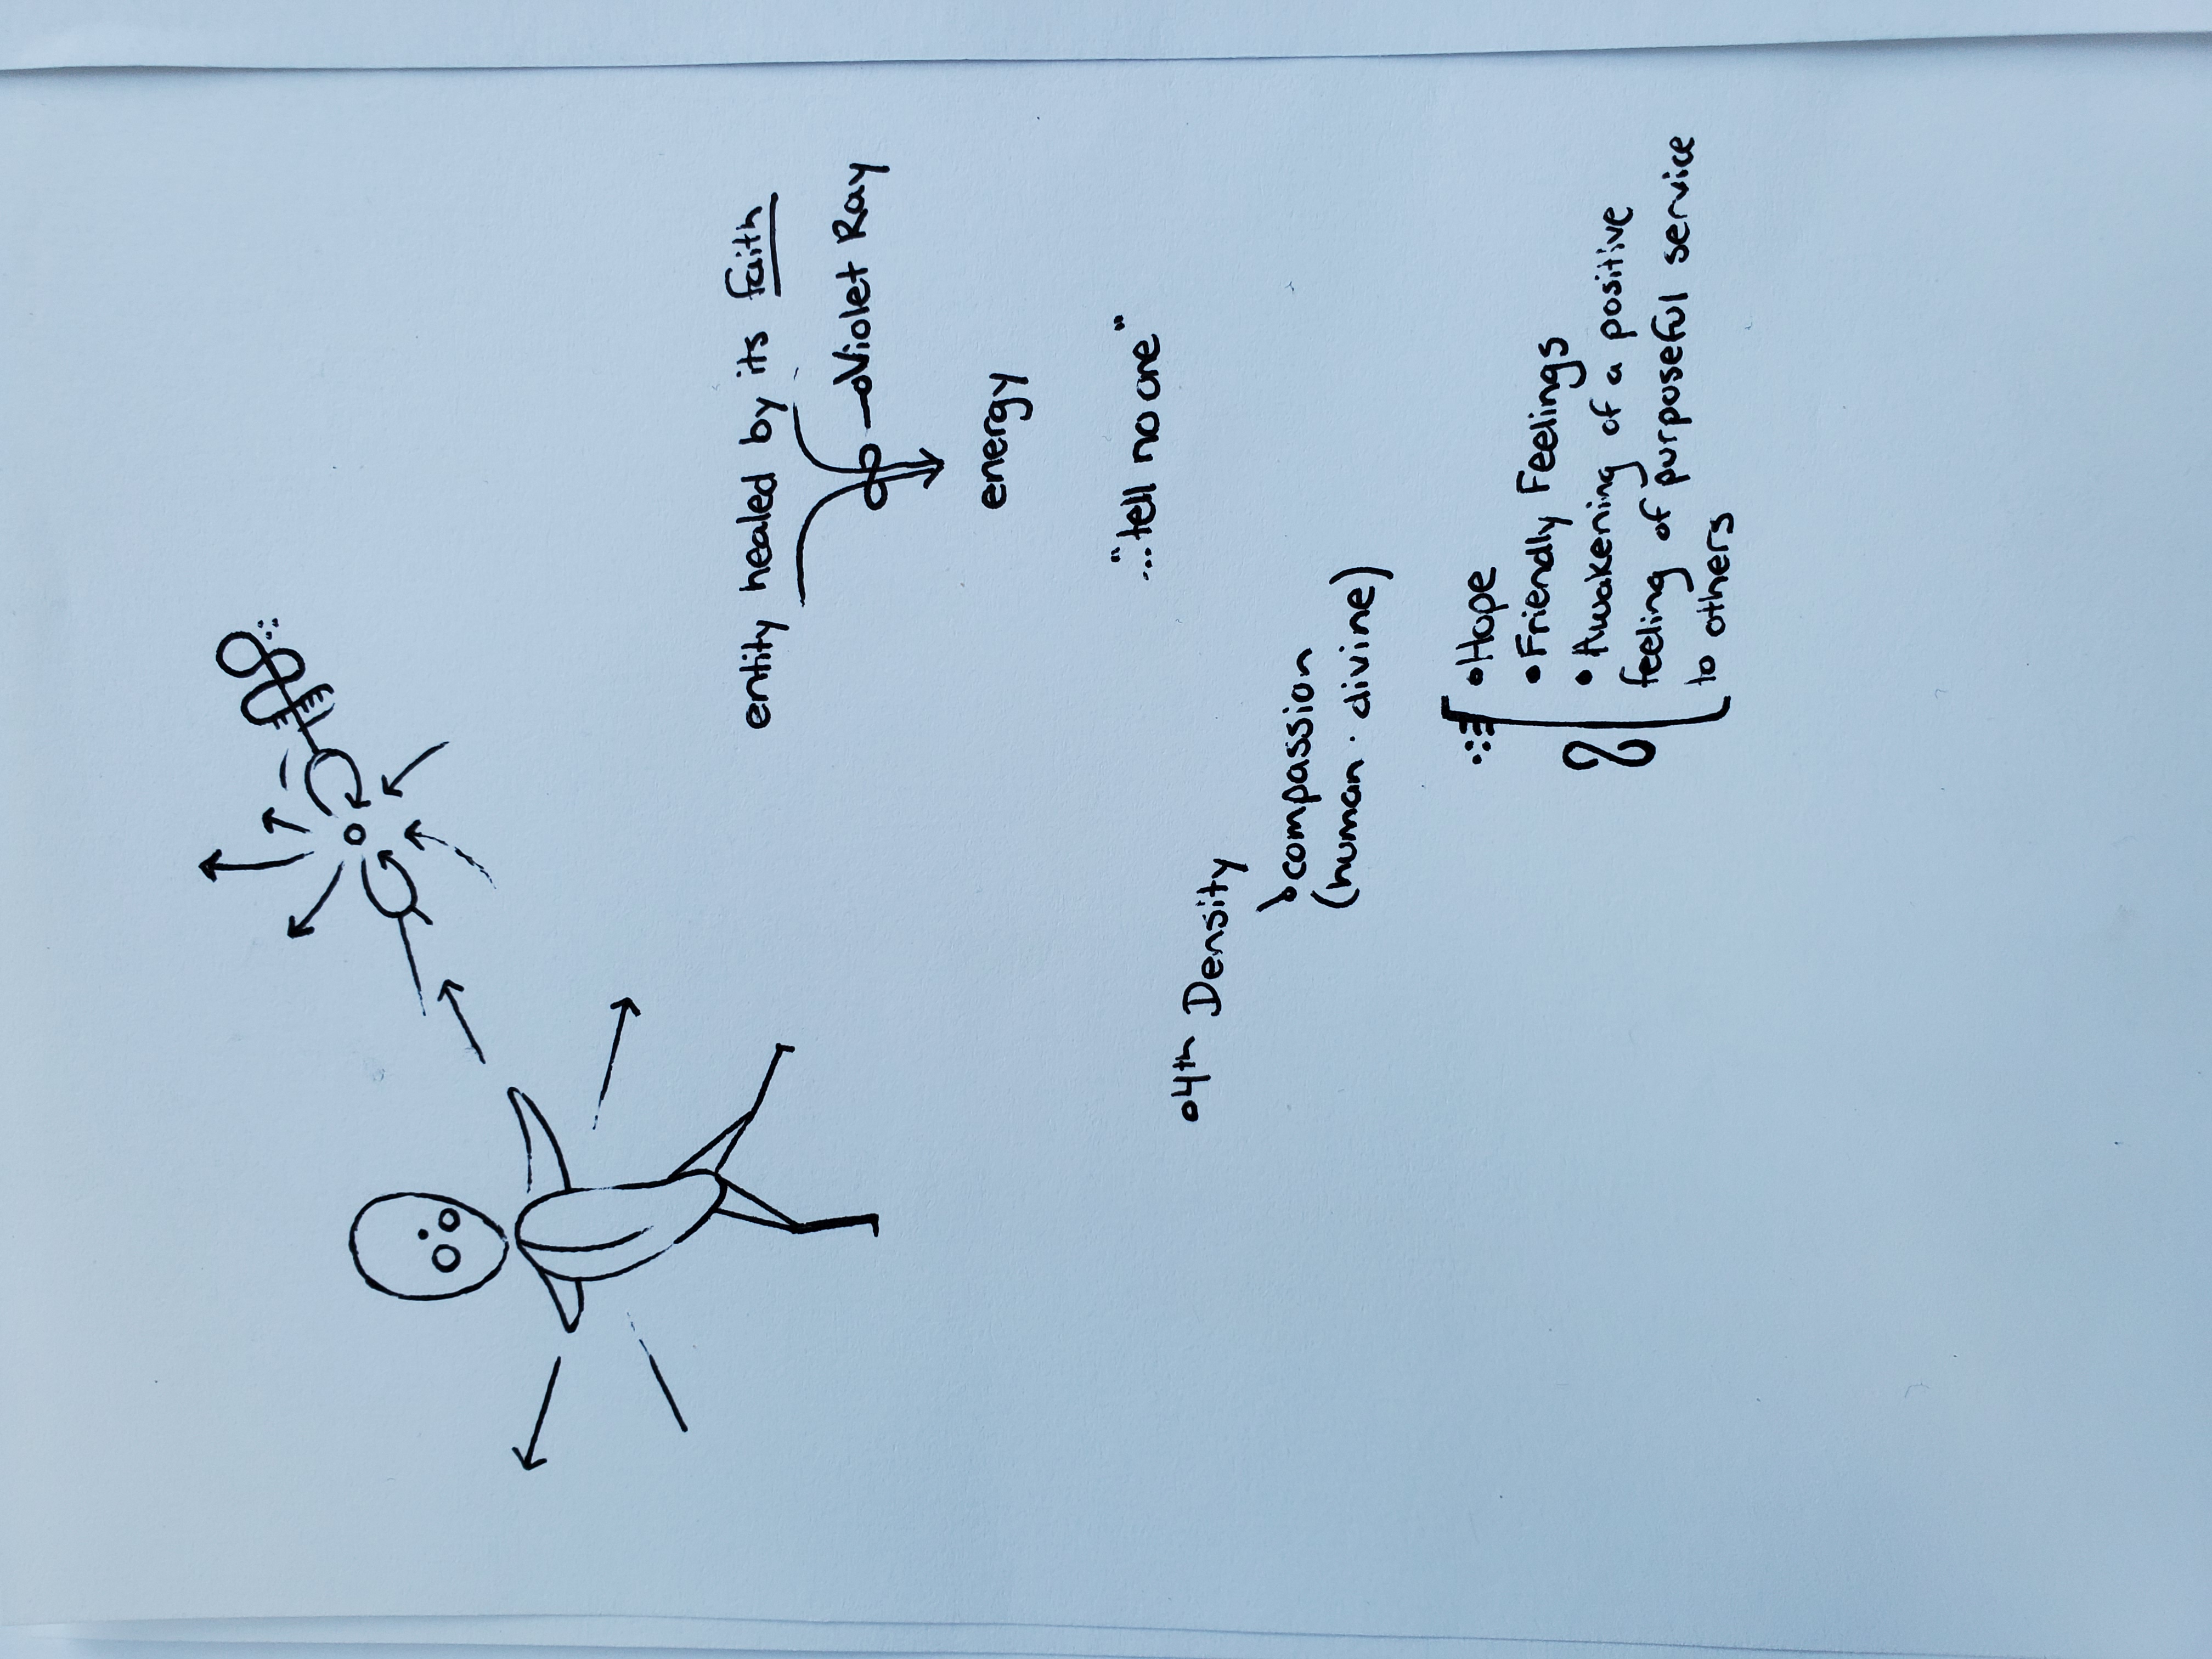 entity healed by its faith
Violet Ray
energy
"...tell no one"
4th Density
compassion
(human · divine)
Hope
• Friendly Feelings
• Awakening of a positive
feeling of purposeful service
to others